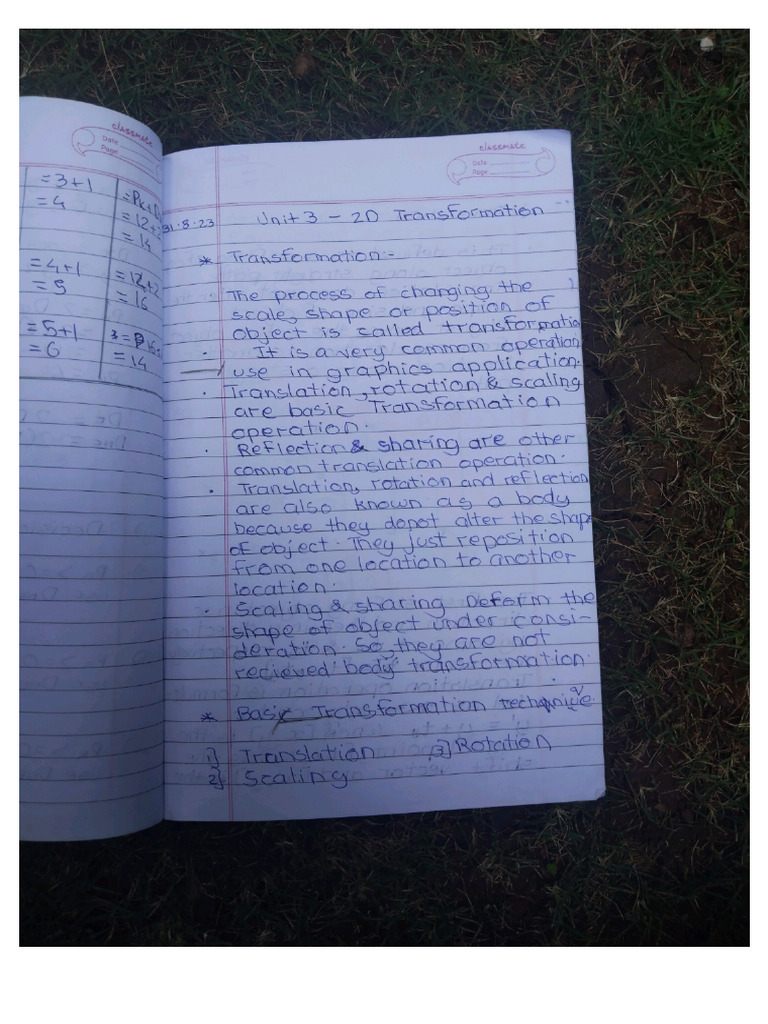 classmate
Date
Page
= 3+1
= 4
= 12+2
= 14
= 4+1
= 5
= 12+2
= 16
= 5+1
= 6
= 14
classmate
Date
Page
31.8.23 Unit 3 - 2D Transformation
* Transformation:-
The process of changing the
scale, shape or position of
object is called transformation
. It is a very common operation
use in graphics application.
. Translation, rotation & scaling
are basic Transformation
operation.
. Reflection & sharing are other
common translation operation.
. Translation, rotation and reflection
are also known as a body
because they donot alter the shape
of object. They just reposition
from one location to another
location.
. Scaling & sharing Deform the
shape of object under consi-
deration. So, they are not
recieved body transformation.
* Basic Transformation technique.
1] Translation 3] Rotation
2] Scaling